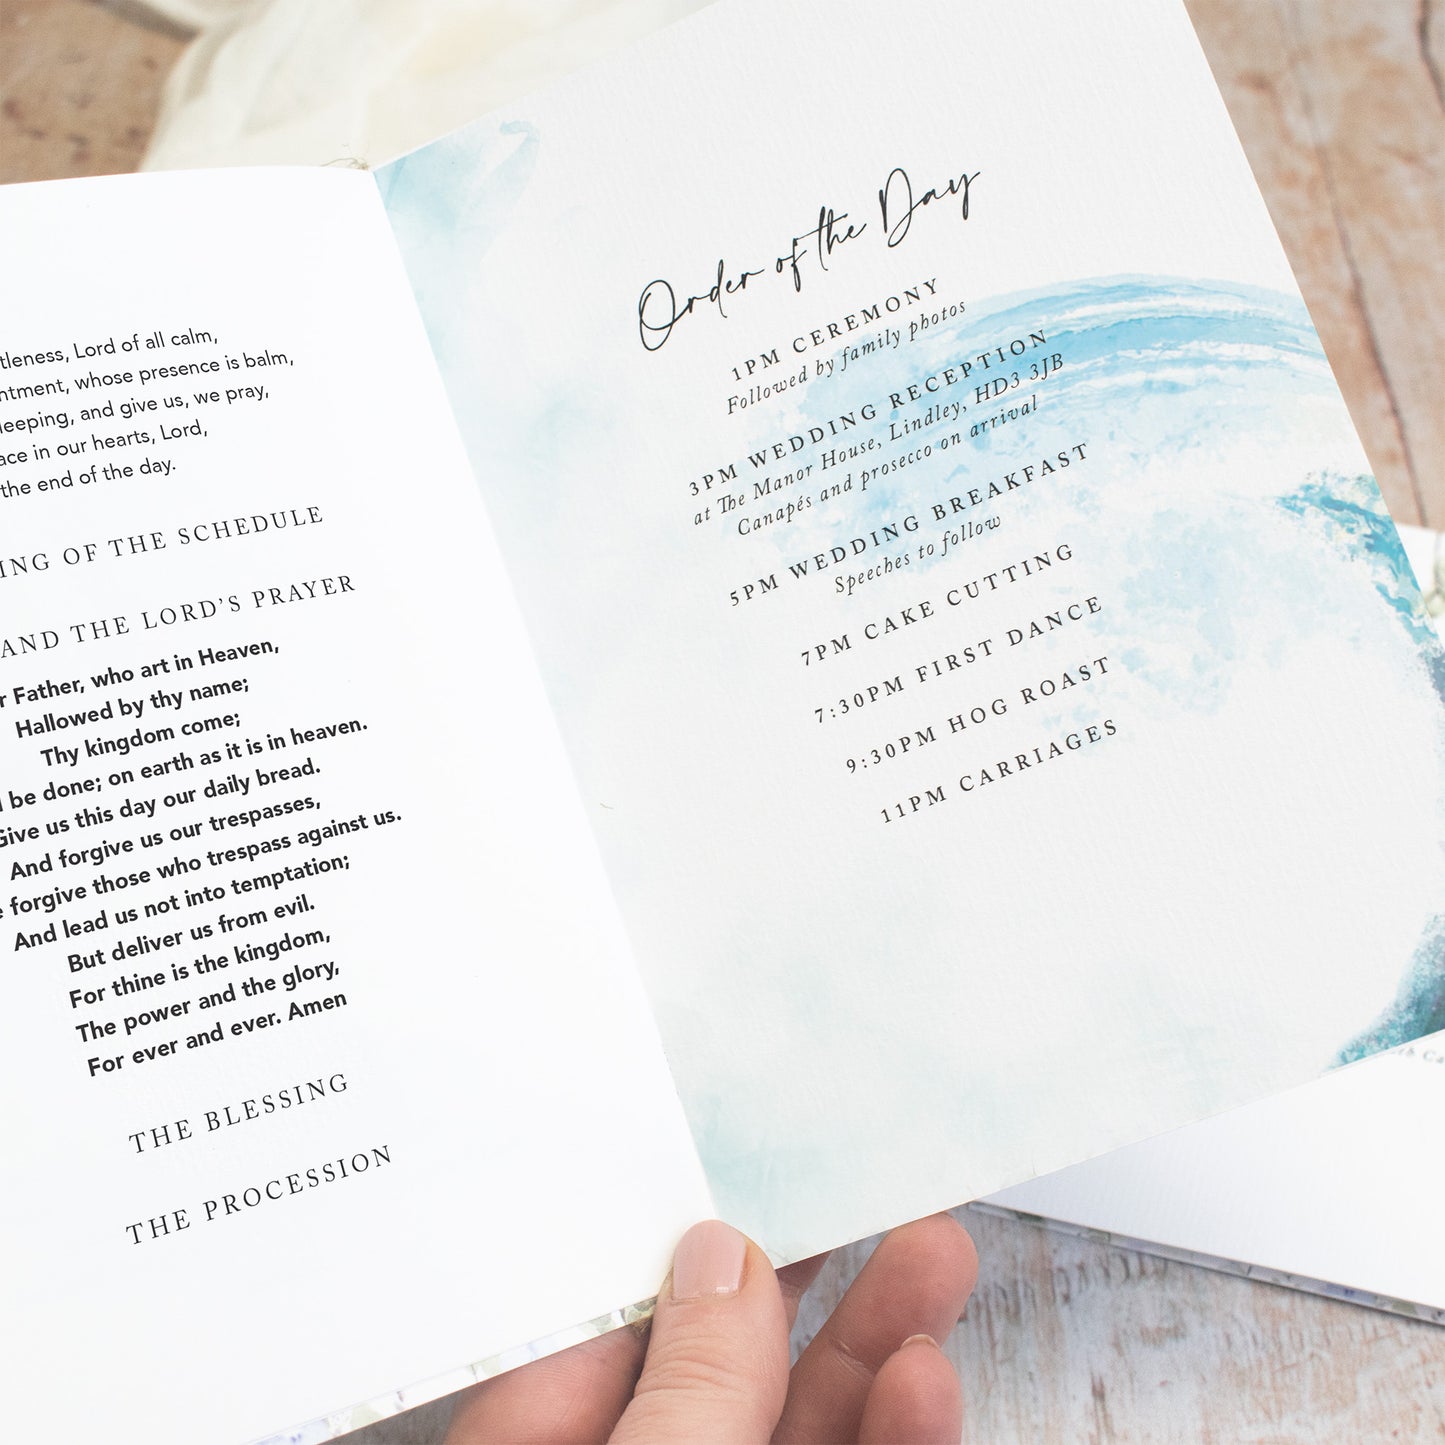 Lord of all calm,
whose presence is balm,
and give us, we pray,
in our hearts, Lord,
the end of the day.
OF THE SCHEDULE
AND THE LORD'S PRAYER
Father, who art in Heaven,
Hallowed by thy name;
Thy kingdom come;
be done; on earth as it is in heaven.
Give us this day our daily bread.
And forgive us our trespasses,
forgive those who trespass against us.
And lead us not into temptation;
But deliver us from evil.
For thine is the kingdom,
The power and the glory,
For ever and ever. Amen
THE BLESSING
THE PROCESSION
Order of the Day
1PM CEREMONY
Followed by family photos
3PM WEDDING RECEPTION
at The Manor House, Lindley, HD3 3JB
Canapés and prosecco on arrival
5PM WEDDING BREAKFAST
Speeches to follow
7PM CAKE CUTTING
7:30PM FIRST DANCE
9:30PM HOG ROAST
11PM CARRIAGES